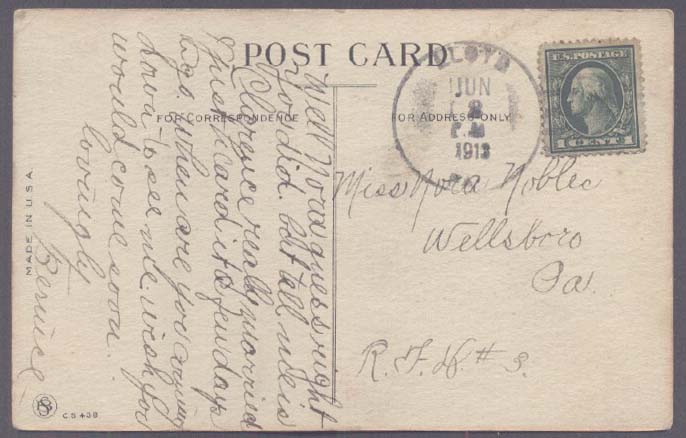 POST CARD
FOR CORRESPONDENCE
FOR ADDRESS ONLY
LLOYD
JUN
8
P.M
1913
U.S. POSTAGE
1 CENT 1
Well Nora guess right
You did. but tell me is
Clarence really married
Just heard it a few days
ago. when are you coming
down to see me wish you
would come soon.
Lovingly
Bernice
Miss Nora Noblec
Wellsboro
Pa.
R. F. D. # 3.
MADE IN U.S.A.
C S 438